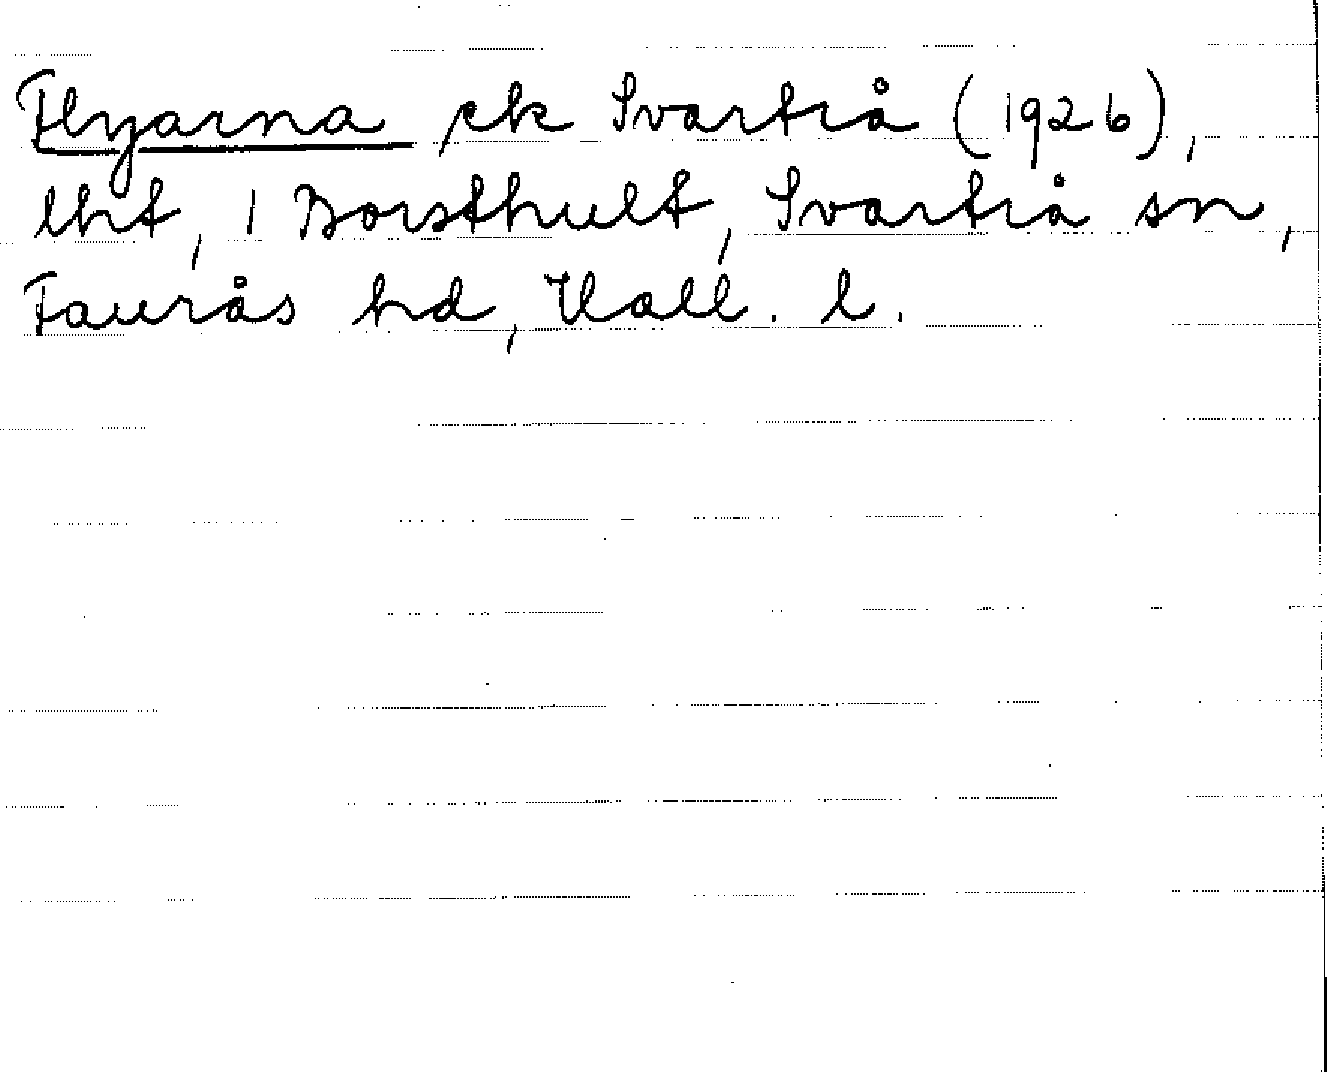 Flyarna ek Svartrå (1926),
lht, 1 Borsthult, Svartrå sn,
Faurås hd, Hall. l.